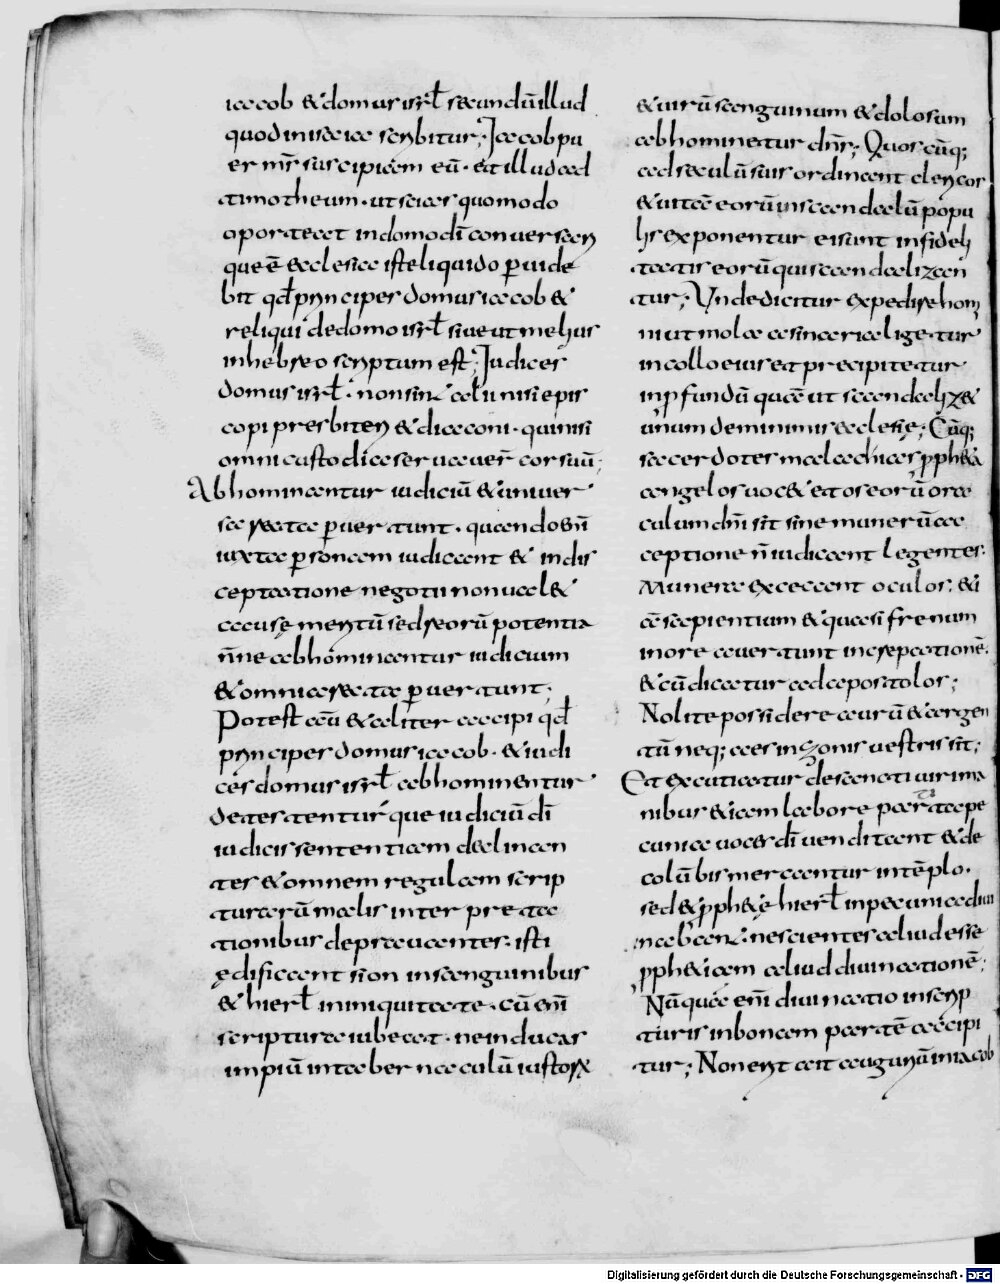 iacob & domus isrł secundū illud
quod in isaia scribitur; Iacob pu
er m̄s suscipiam eū · et illud ad
timotheum · ut scias quomodo
oporteat in domo dī conuersari
que ē ecclesia iste liquido ꝑuide
bit qđ principes domus iacob &
reliqui de domo isrł siue ut melius
in hebreo scriptum est; Iudices
domus isrł · non sint alii nisi epis
copi presbiteri & diaconi · qui nisi
omni custodia seruauer̄ cor suū;
Abhominantur iudiciū & uniuer
sa recta ꝑuertunt · quando eni̅
iuxta ꝑsonam iudicant & in dis
ceptatione negotii non ualet
causę meritū sed reorū potentia
ñne abhominantur iudicium
& omnia recta ꝑuertunt;
Potest aū & aliter accipi qđ
principes domus iacob · & iudi
ces domus isrł abhominentur
detestenturque iudiciū dī
iudicis sententiam declinan
tes & omnem regulam scrip
turarū malis interpreta
tionibus deprauantes · isti
ędificant sion in sanguinibus
& hierł in iniquitate · Cū eni̅
scriptura iubeat · ne inducas
impiū in tabernaculū iustoꝝ
& uirū sanguinum & dolosum
abhominetur dn̄s; Quoscūq;
ad saeculū suis ordinant clericos
& uitāe eorū in scandalū popu
lis exponentur ei sunt infideli
tatis eorū qui scandalizan
tur; Unde dicitur expedi& homi
ni ut mola asinaria ligetur
in collo eius et precipitetur
in ꝓfundū quā ut scandaliz&
unum de minimis ecclesię; Cūq;
sacerdotes malachias ꝓph&a
angelos uoc& et os eorū ora
culum dn̄i sit sine munerū ac
ceptione n̄ iudicant legentes ·
Munera excecant oculos · &i
ā sapientium & quasi frenum
in ore auertunt increpationē ·
& cū dicatur ad apostolos;
Nolite possidere aurū & argen
tū neq; aes in zonis uestris sit;
Et excuticatur de sanati uirima
nibus & iam labore parta pe
cunia uoces dī uenditant & de
colūbis mercantur in tēplo ·
sed & ꝓph&ę hierł in pecunia diui
nabant · nescientes aliud esse
ꝓph&iam aliud diuinationē;
Nūquā eni̅ diuinatio in scrip
turis in bonam partē accipi
tur; Non erit ait auguriū in iacob
Digitalisierung gefördert durch die Deutsche Forschungsgemeinschaft - DFG